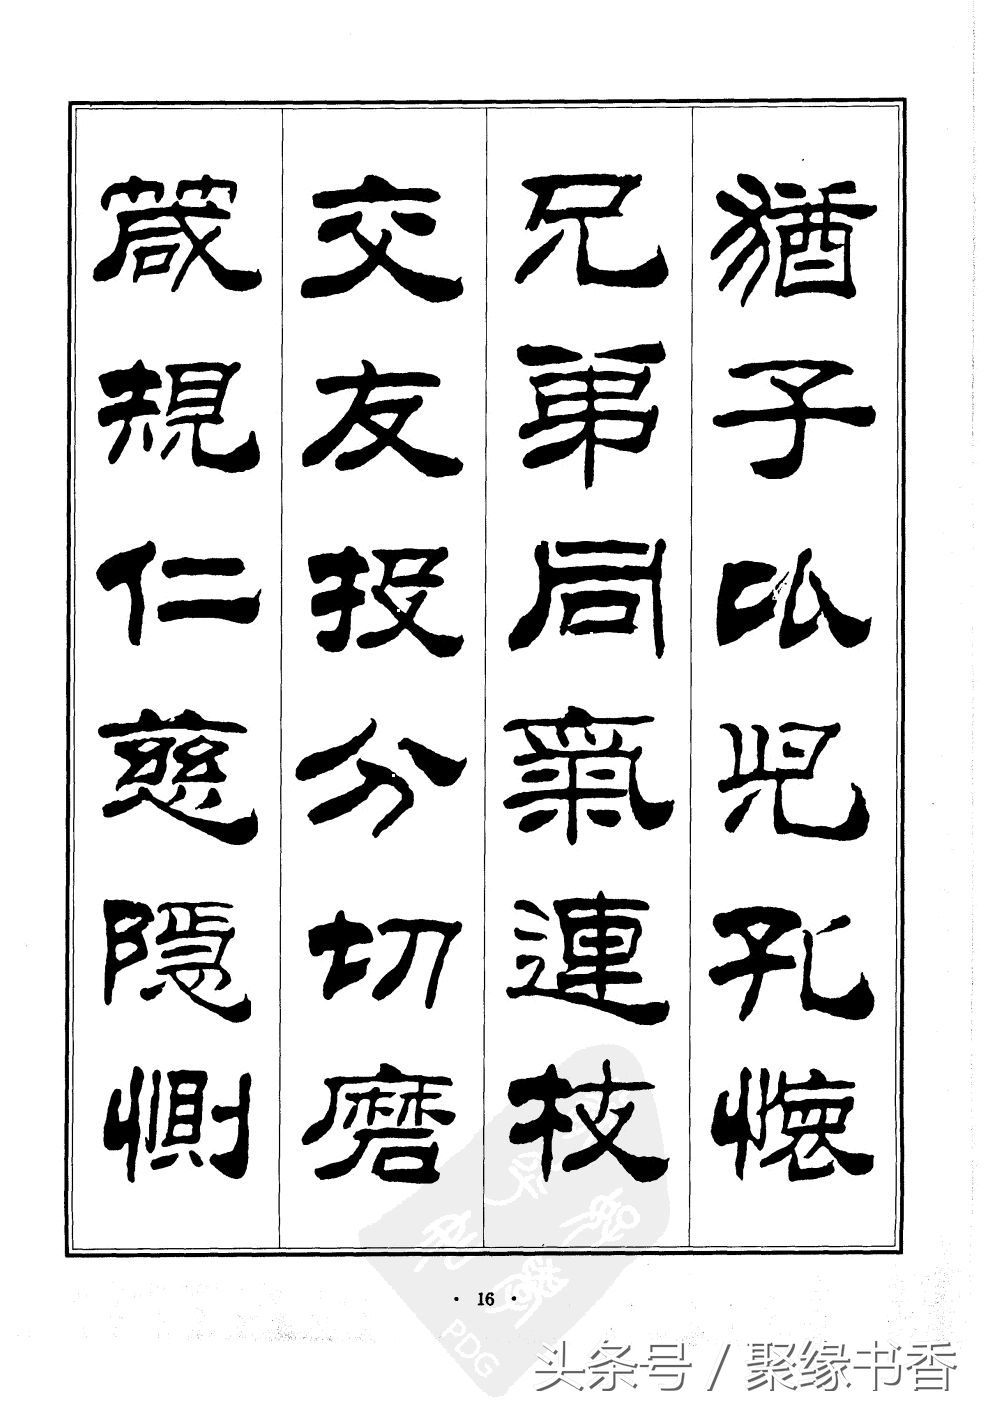 猶子㕥兒孔懷
兄弟同氣連枝
交友投分切磨
箴規仁慈隱惻
· 16 ·
PDG
头条号 / 聚缘书香